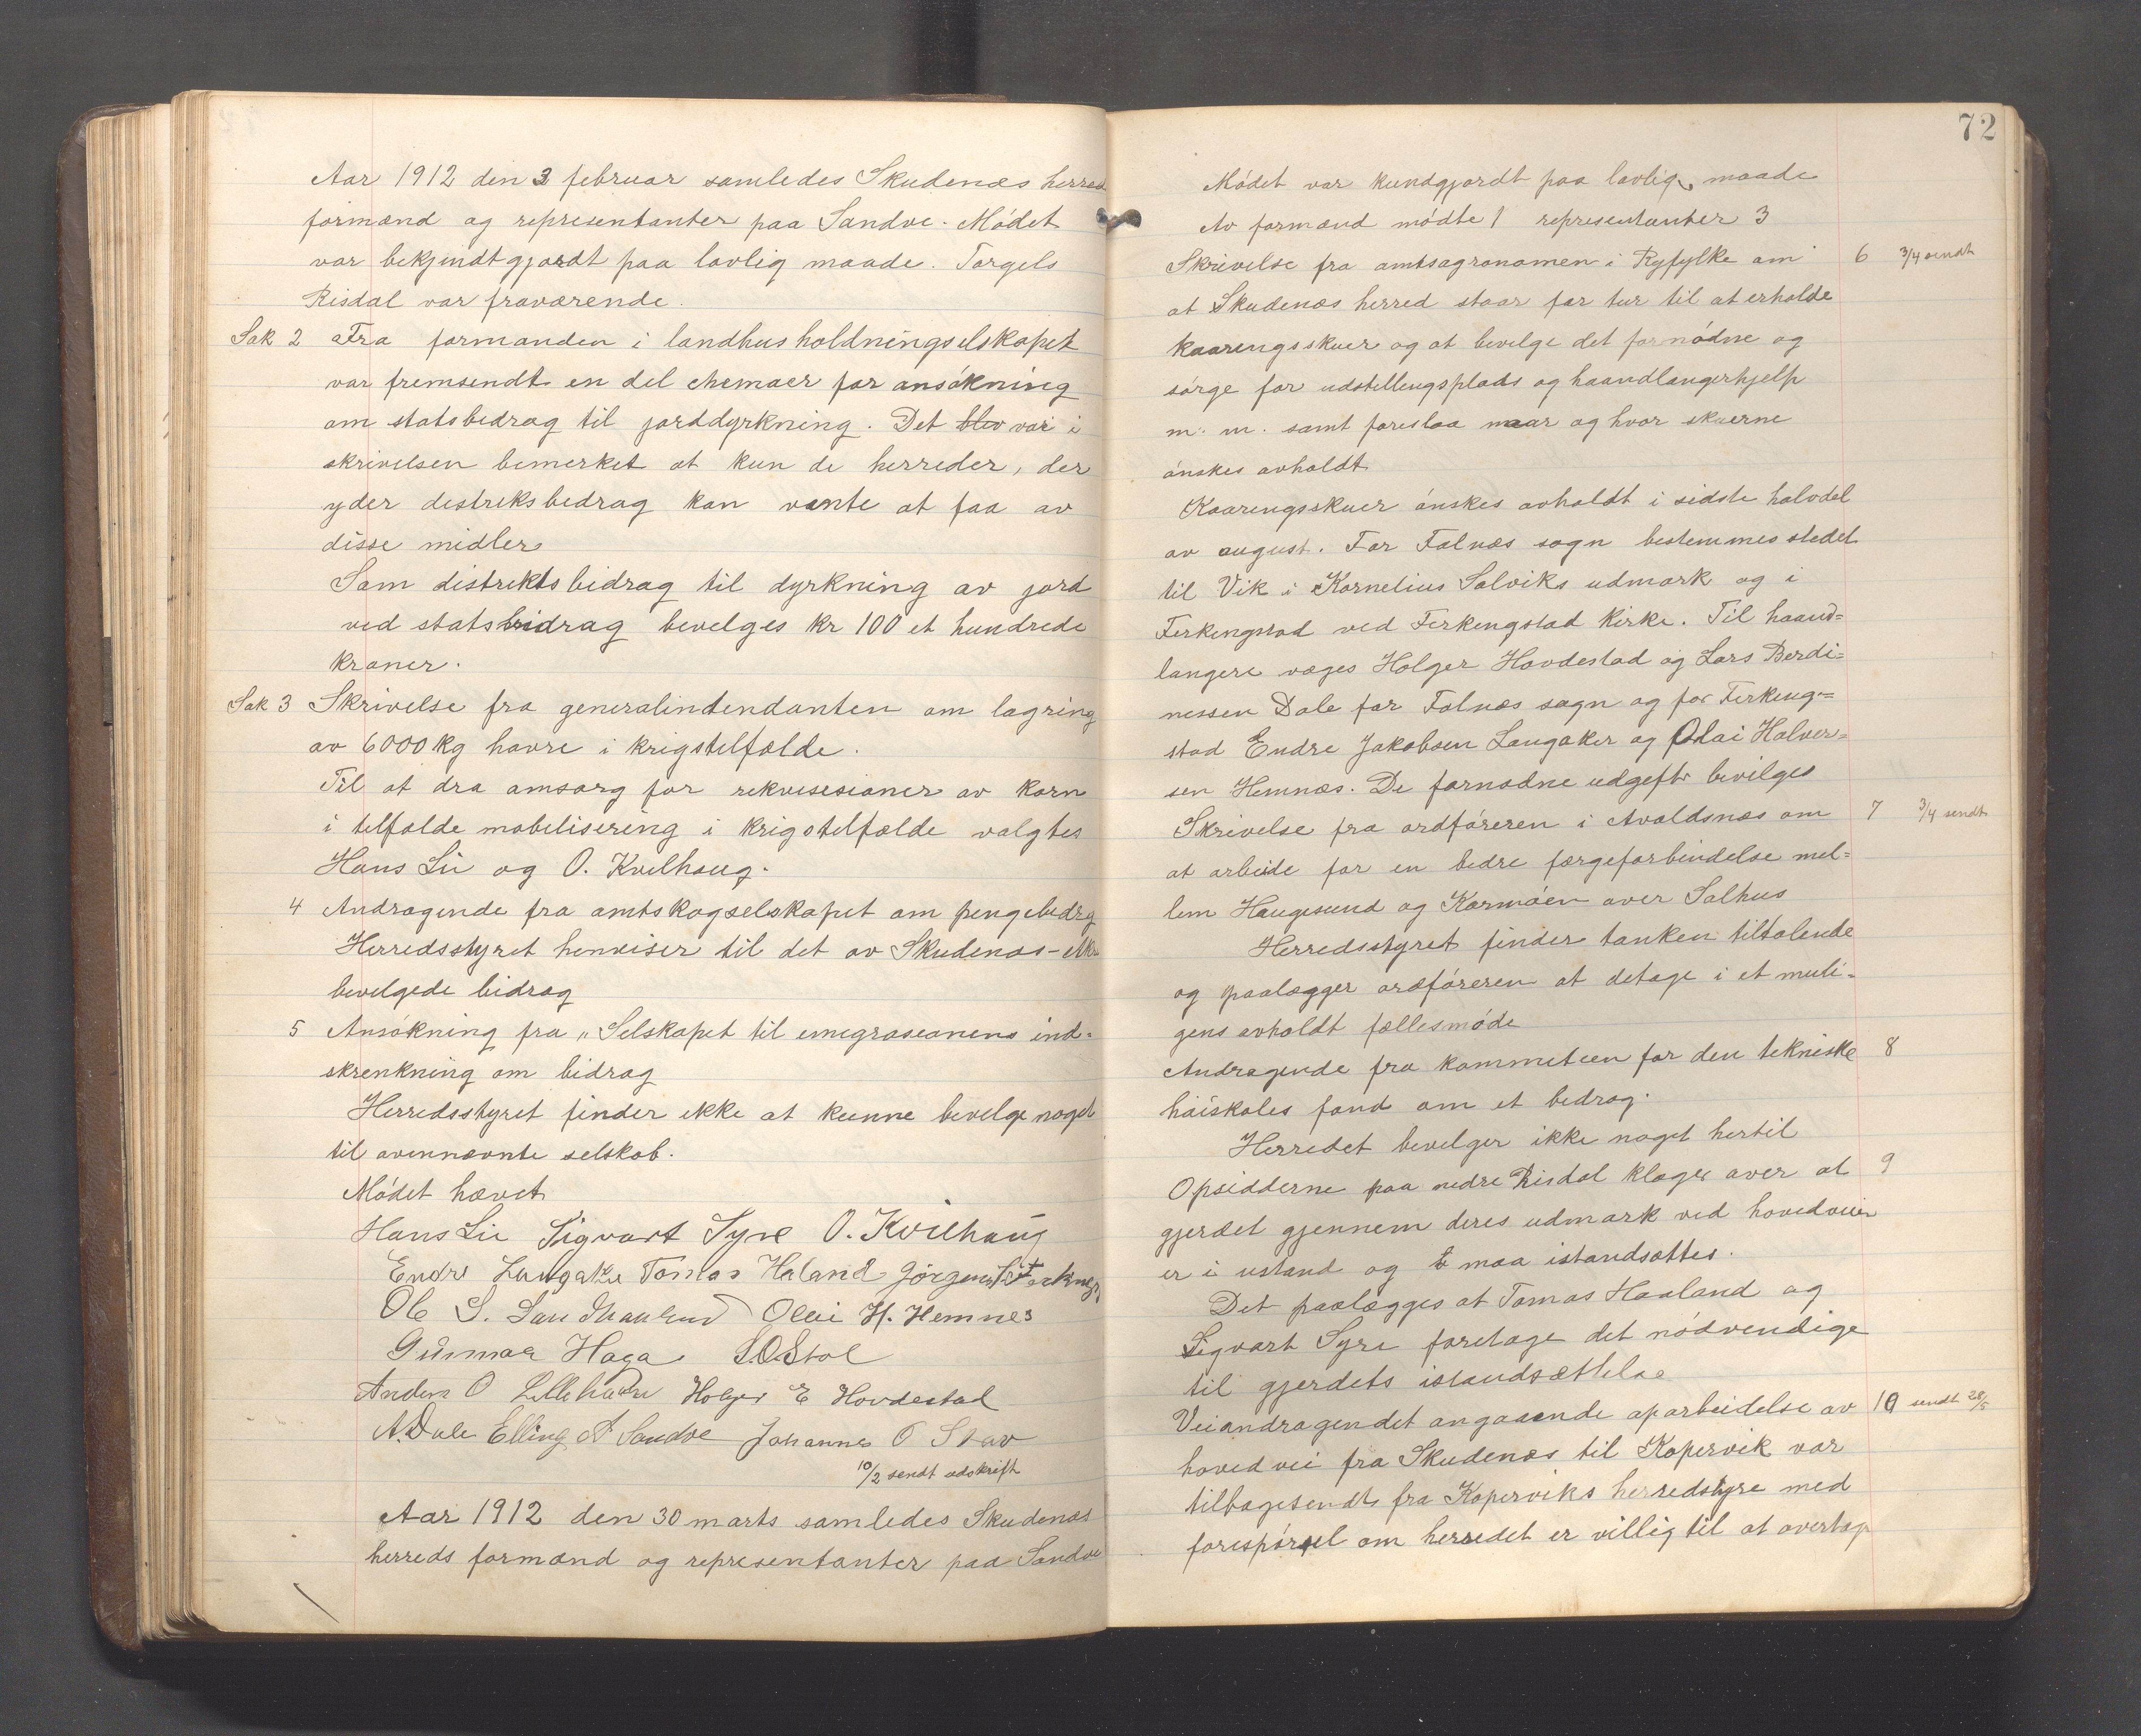 Aar 1912 den 3 februar samledes Skudenæs herred
formænd og representanter paa Sandve. Mødet
var bekjendtgjordt paa lovlig maade. Torgels
Risdal var fraværende.
Sak 2 Fra formanden i landhusholdningselskapet
var fremsendt en del chemaer for ansøkning
om statsbedrag til jorddyrkning. Det blev var i
skrivelsen bemerket at kun de herreder, der
yder destriksbedrag kan vænte at faa av
disse midler
Som distriktsbidrag til dyrkning av jord
ved statsbidrag bevelges kr 100 et hundrede
kroner.
Sak 3 Skrivelse fra generalintendanten om lagring
av 6000 kg havre i krigstelfælde.
Til at dra omsorg for rekvesesioner av korn
i telfælde mobilisering i krigstelfælde valgtes
Hans Lie og O. Kvilhaug.
4 Andragende fra amtskogselskapet om pengebedrag
Herredsstyret henviser til det av Skudenæs-
bevelgede bidrag
5 Ansøkning fra „Selskapet til emegraseonens ind-
skrenkning om bidrag
Herredsstyret finder ikke at kunne bevelge noget
til ovennævnte selskob.
Mødet hævet
Hans Lie Sigvart Syre O. Kvilhaug
Endre Langaker Tomas Haland Jørgen
Ole S. Olai H. Hemnes
Gunnar Haga S.O. Stol
Anders O Holger E Hovdestad
A. Dale Elling Sandve Johannes O Stav
10/2 sendt udskrift
Aar 1912 den 30 marts samledes Skudenæs
herreds formænd og representanter paa Sandve
72
Mødet var kundgjordt paa lovlig maade
Av formænd mødte 1 representanter 3
Skrivelse fra amtsagronomen i Ryfylke om 6 3/4 sendt
at Skudenæs herred staar for tur til at erholde
kaarengsskuer og at bevelge det fornødne og
sørge for udstellengsplads og haandlangerhjelp
m. m. samt foreslaa naar og hvor skuerne
ønskes avholdt
Kaarengsskuer ønskes avholdt i sidste halvdel
av august. For Falnæs sogn bestemmes stedet
til Vik i Kornelius Solviks udmark og i
Ferkengstad ved Ferkengstad kirke. Til haand-
langere væges Holger Hovdestad og Lars Berdi-
nessen Dale for Falnæs sogn og for Ferkeng-
stad Endre Jakobsen Langaker og Olai Halver-
sen Hemnæs. De fornødne udgefter bevilges
Skrivelse fra ordføreren i Avaldsnæs om 7 3/4 sendt
at arbeide for en bedre færgeforbindelse mel-
lem Haugesund og Karmøen over Salhus
Herredsstyret finder tanken tiltalende
og paalægger ordføreren at detage i et muli-
gens avholdt fællesmøde
Andragende fra kommeteen for den tekniske 8
høiskoles fond om et bedrag.
Herredet bevelger ikke noget hertil
Opsidderne paa nedre Risdal klager over at 9
gjerdet gjennem deres udmark ved hovedveien
er i ustand og maa istandsættes.
Det paalægges at Tomas Haaland og
Sigvart Syre foretage det nødvendige
til gjerdets istandsættelse
Veiandragendet angaaende oparbeidelse av 10 sendt 28/5
hovedvei fra Skudenæs til Kopervik var
tilbagesendt fra Koperviks herredstyre med
forespørsel om herredet er villig til at overtage